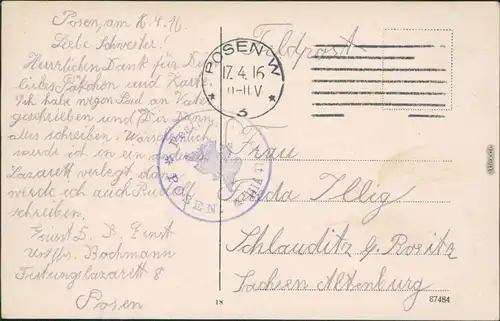 Posen, am 16.4.16.
Liebe Schwester!
Herrlichen Dank für Dein
liebes Päkchen und Karte.
Ich habe an Vater
geschrieben und Dir dann
alles schreiben. Warscheinlich
werde ich in ein anderes
Lazarett verlegt, dann
werde ich auch
schreiben.
Gruss D. B. Ernst
Uffz. Bochmann
Festungslazarett 8
Posen
Feldpost
POSEN W
17.4.16
11-11V
3
POSEN
Frau
Frida Illig
Schlauditz b. Rositz
Sachsen Altenburg
18
87484